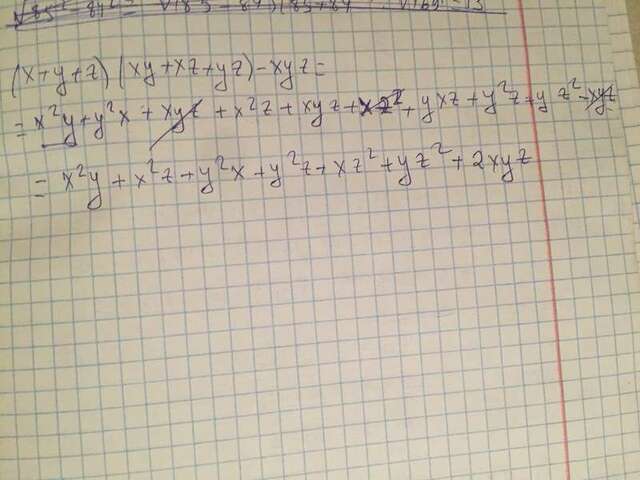 (x+y+z)(xy+xz+yz)-xyz=
=x²y+y²x+xyz+x²z+xyz+xz²+yxz+y²z+yz²-xyz
=x²y+x²z+y²x+y²z+xz²+yz²+2xyz